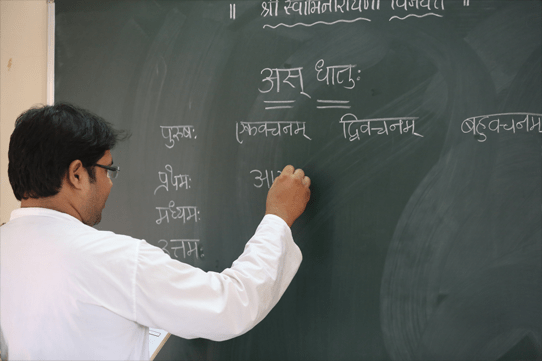 ॥ श्री स्वामिनारायणो विजयते ॥
अस् धातुः
पुरुषः एकवचनम् द्विवचनम् बहुवचनम्
प्रथमः
मध्यमः
उत्तमः